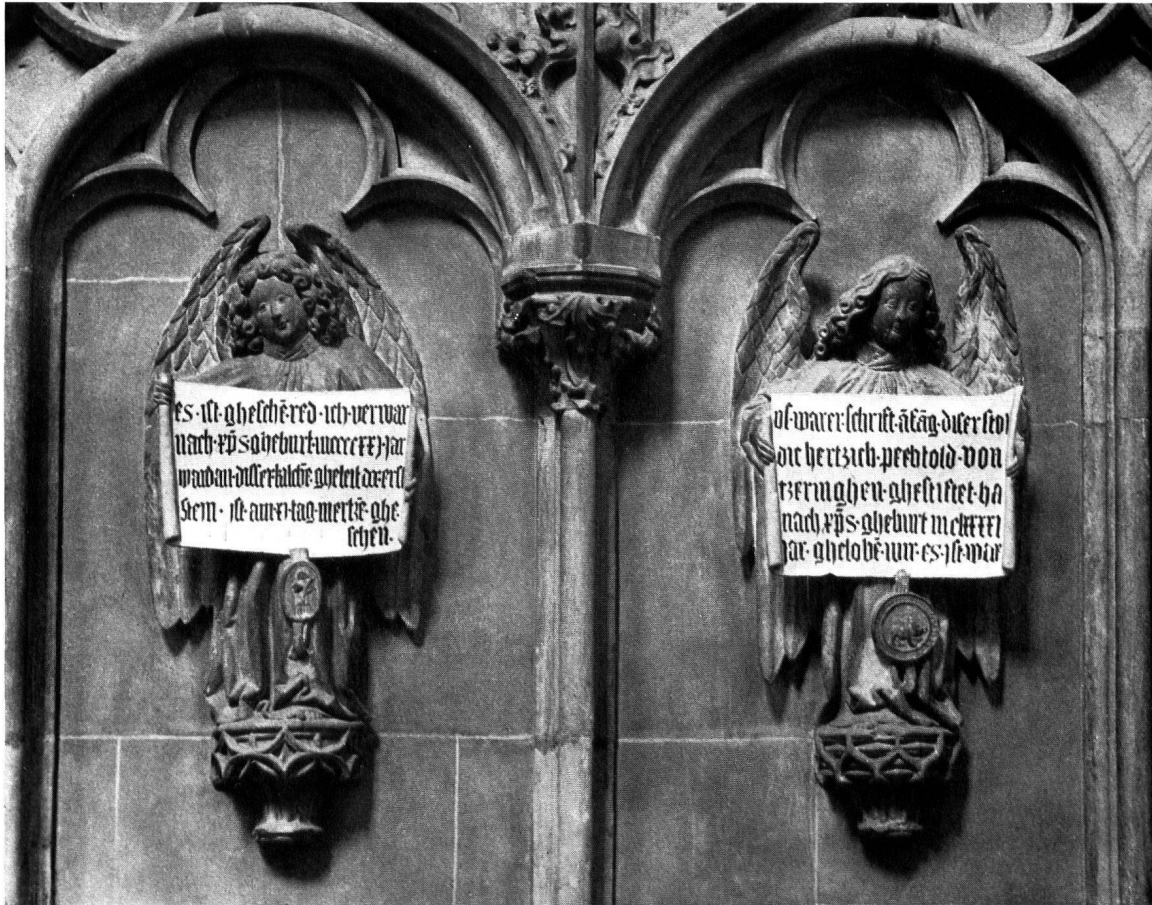 es · ist · gheschē · red · ich · verwar
nach · xp̄s · gheburt · mccccxxj · jar
ward · an · disser · kilchē · gheleit · der · erst
stein · ist · am · xj · tag · mertzē · ghe
schen ·
vs · warer · schrift · ā fāg · diser stat
die hertzich · pechtold · von
tzeringhen · ghestiftet · ha
nach xp̄s · gheburt mclxxxxi
jar · ghelobē · wir · es · ist · war